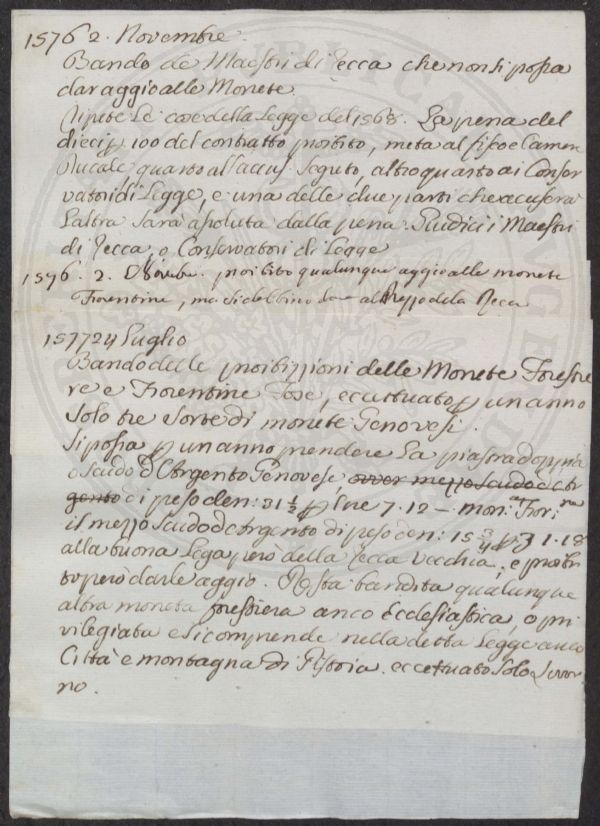 1576 2. Novembre.
Bando de Maestri di Zecca che non si possa
dar aggio alle Monete.
Ripete le cose della Legge del 1568. La pena del
dieci p 100 del contratto proibito, metà al fisco e Camera
Ducale, quarto all'accus: segreto, altro quarto ai Conser
vatori di Legge, e una delle due parti che accuserà
l'altra sarà assoluta dalla pena. Giudici i Maestri
di Zecca, o Conservatori di Legge
1576. 2. Novembe. proibito qualunque aggio alle monete
Fiorentine, ma si debbino dare al prezzo della Zecca
1577 24 Luglio
Bando delle proibizioni delle Monete Forestie
re e Fiorentine Tose, eccettuato p un anno
solo tre sorte di monete Genovesi.
Si possa p un anno prendere La piastra doppia
o Scudo d'Argento Genovese over mezzo Scudo d'Ar
gento di peso den: 31 1/2 p lire 7. 12 – mon:ta Fior:na
il mezzo Scudo d'Argento di peso den: 15 3/4 p 31.18
alla buona Lega però della Zecca Vecchia, e proibi
to però darle aggio. Resta bandita qualunque
altra moneta forestiera anco Ecclesiastica, o pri
vilegiata e si comprende nella detta Legge anco
Città e montagna di Pistoia. eccettuato solo Livor
no.